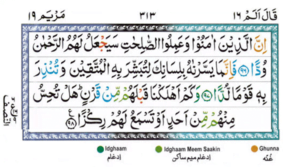 قَالَ اَلَمْ ١٦ ٣١٣ مَرْيَم ١٩
اِنَّ الَّذِيْنَ اٰمَنُوْا وَعَمِلُوا الصّٰلِحٰتِ سَيَجْعَلُ لَهُمُ الرَّحْمٰنُ
وُدًّا ﴿٩٦﴾ فَاِنَّمَا يَسَّرْنٰهُ بِلِسَانِكَ لِتُبَشِّرَ بِهِ الْمُتَّقِيْنَ وَتُنْذِرَ
بِهٖ قَوْمًا لُّدًّا ﴿٩٧﴾ وَكَمْ اَهْلَكْنَا قَبْلَهُمْ مِّنْ قَرْنٍ هَلْ تُحِسُّ
مِنْهُمْ مِّنْ اَحَدٍ اَوْ تَسْمَعُ لَهُمْ رِكْزًا ﴿٩٨﴾
Idghaam Idghaam Meem Saakin Ghunna
ادغام ادغام میم ساکن غنّه